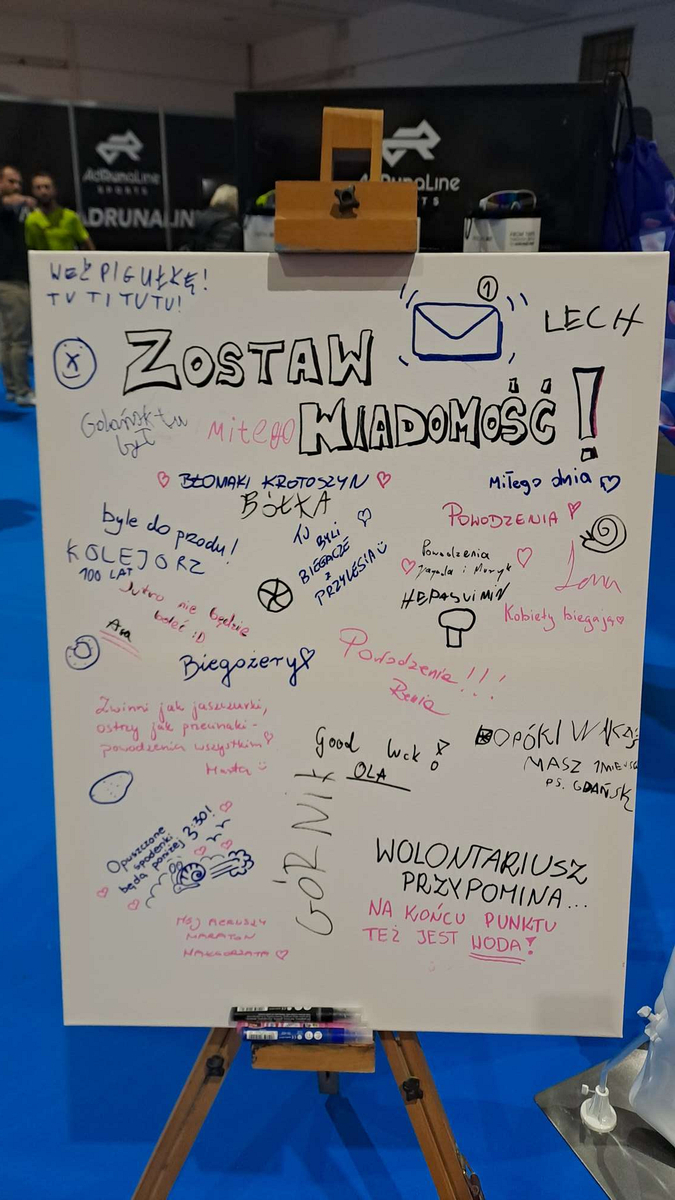 AdRunaLine
SPORTS
ADRUNALIN
AdRunaLine
FROM TAPE
WEŹ PIGUŁKĘ!
TU TI TUTU!
1
LECH
ZOSTAW
WIADOMOŚĆ!
Gdańsk tu
był
Miłego
BŁONIAKI KROTOSZYN
BÓŁKA
Miłego dnia
byle do przodu!
KOLEJORZ
100 LAT
TU BYLI
BIEGACZE
Z
PRZYLESIA
POWODZENIA
Powodzenia
Jagoda i Muryk
HEPASLIMIN
Kobiety biegają
Jutro nie będzie
boleć :D
Ana
Biegożery
Powodzenia!!!
Renia
Zwinni jak jaszczurki,
ostrzy jak przecinaki -
powodzenia wszystkim
Marta
Good luck!
OLA
DOPÓKI WALCZYSZ
MASZ 1 MIEJSCE
PS. GDAŃSK
Opuszczone
spodenki
będą poniżej 3:30!
GÓRNIK
WOLONTARIUSZ
PRZYPOMINA...
NA KOŃCU PUNKTU
TEŻ JEST WODA!
MÓJ PIERWSZY
MARATON
MAŁGORZATA